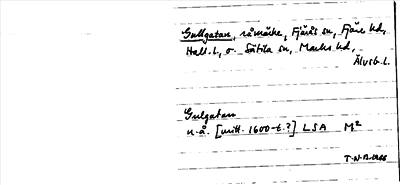 Gullgatan, råmärke, Fjärås sn, Fjäre hd,
Hall. l., o. Sätila sn, Marks hd,
Älvsb. l.
Gulgatan
u.å. [mitt. 1600-t.?] LSA M²